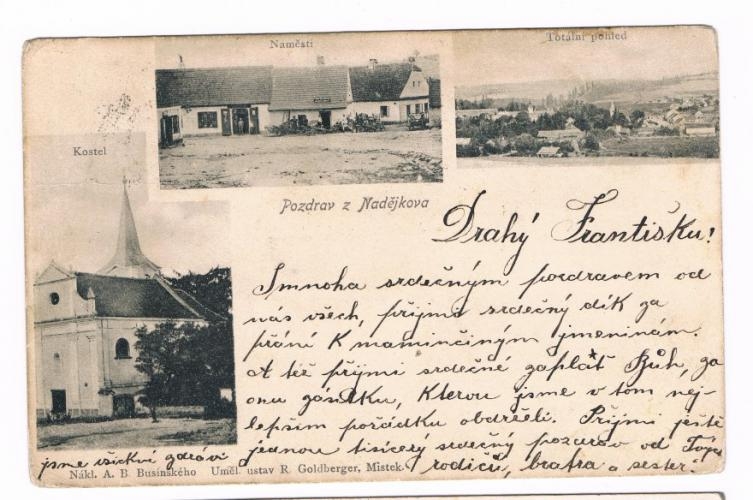 Naměstí
Totální pohled
Kostel
Pozdrav z Nadějkova
Drahý Františku!
S mnoha srdečným pozdravem od
nás všech, přijmo srdečný dík za
přání K maminčiným jmeninám.
A též přijmi srdečné zaplať Bůh, za
onu zásilku, Kterou jsme v tom nej-
lepším pořádku obdrželi. Přijmi ještě
jednou tisícerý srdečný pozdrav od Tvých
rodičů, bratra a sester!
jsme všickni zdrávi
Nákl. A. B. Businského Uměl. ustav R. Goldberger, Mistek.